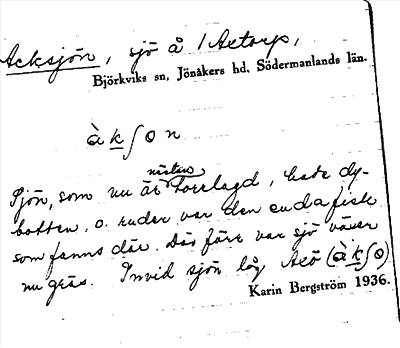 Acksjön, sjö å 1 Aetorp,
Björkviks sn, Jönåkers hd, Södermanlands län.
àkʃon
Sjön, som nu är nästan torrlagd, hade dy-
botten, o. rudor var den enda fisk
som fanns där. Där förr var sjö växer
nu gräs. Invid sjön låg Aeö (àkʃo)
Karin Bergström 1936.